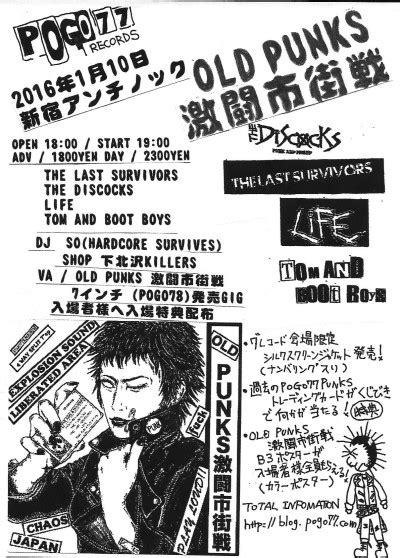 POGO77
RECORDS
2016年1月10日
新宿アンチノック
OLD PUNKS
激闘市街戦
OPEN 18:00 / START 19:00
ADV / 1800YEN DAY / 2300YEN
THE LAST SURVIVORS
THE DISCOCKS
LIFE
TOM AND BOOT BOYS
DJ SO(HARDCORE SURVIVES)
SHOP 下北沢KILLERS
VA / OLD PUNKS 激闘市街戦
7インチ (POGO78)発売GIG
入場者様へ入場特典配布
THE DISCOCKS
THE LAST SURVIVORS
LIFE
TOM AND
BOOT BOYS
4 WAY SPLIT 7"ep
EXPLOSION SOUND
LIBERATED AREA
CHAOS
JAPAN
OLD
PUNKS激闘市街戦
Fuck
PLAY LOUD!!
・レコード会場限定
シルクスクリーンジャケット発売!
(ナンバリング入り)
・過去のPOGO77PUNKS
トレーディングカードがくじびき
で何かが当たる!
・OLD PUNKS
激闘市街戦
B3ポスターが
入場者様全員もらえる!
(カラーポスター)
TOTAL INFOMATION
http://blog.pogo77.com